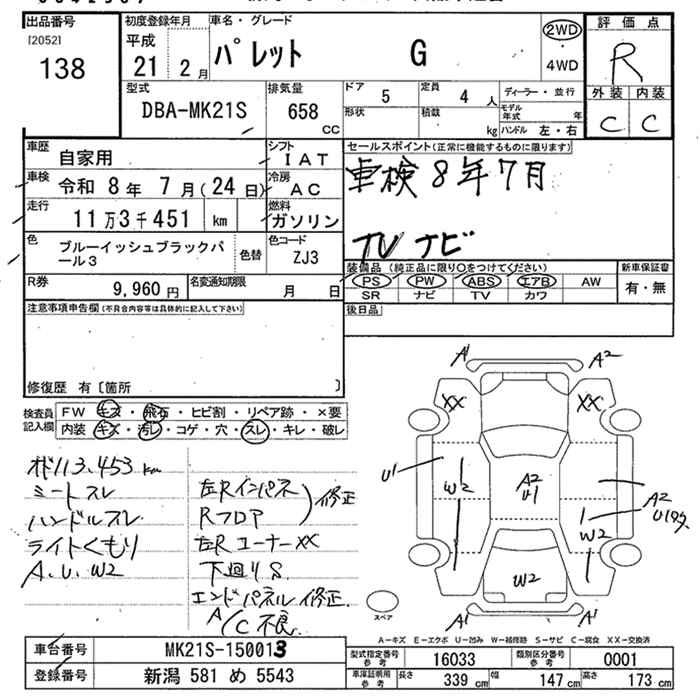 出品番号
[2052]
138
初度登録年月
平成
21 2月
車名・グレード
パレット G
2WD
・
4WD
評価点
R
外装 内装
C C
型式
DBA-MK21S
排気量
658
CC
ドア
5
定員
4 人
形状
積載
kg
ディーラー・並行
モデル年式 年
ハンドル 左・右
車歴
自家用
シフト
IAT
車検
令和 8年 7月(24日)
冷房
AC
走行
11万3千451 km
燃料
ガソリン
色
ブルーイッシュブラックパール3
色替
色コード
ZJ3
R券
9,960円
名変通知期限
月 日
セールスポイント(正常に機能するものに限ります)
車検8年7月
TV ナビ
装備品(純正品に限り○をつけてください)
PS PW ABS エアB AW
SR ナビ TV カワ
新車保証書
有・無
後日品
注意事項申告欄(不具合内容等は具体的に記入して下さい)
修復歴 有〔箇所 〕
検査員記入欄
FW キズ・飛石・ヒビ割・リペア跡・×要
内装 キズ・汚レ・コゲ・穴・スレ・キレ・破レ
メ113,453km
ミートスレ
ハンドルスレ
ライトくもり
A.U.W2
左Rインパネ
Rフロア
修正
左Rコーナー××
下廻りS
エンドパネル修正
A/C不良
A1 A2
XX XX
U1
W2
A2
U1
A2
W2
W2
A1 A1
スペア
A-キズ E-エクボ U-凹み W-補修跡 S-サビ C-腐食 XX-交換済
車台番号
MK21S-150013
登録番号
新潟 581 め 5543
型式指定番号
参考
16033
類別区分番号
参考
0001
車庫証明用
参考
長さ 339 cm
幅 147 cm
高さ 173 cm